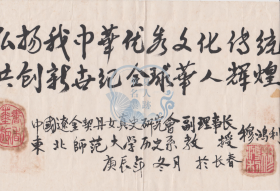 弘扬我中華优秀文化传統
共创新世纪全球華人輝煌
中國遼金契丹女真史研究會副理事长
東北師范大学历史系教授 穆鴻利
庚辰年冬月於长春